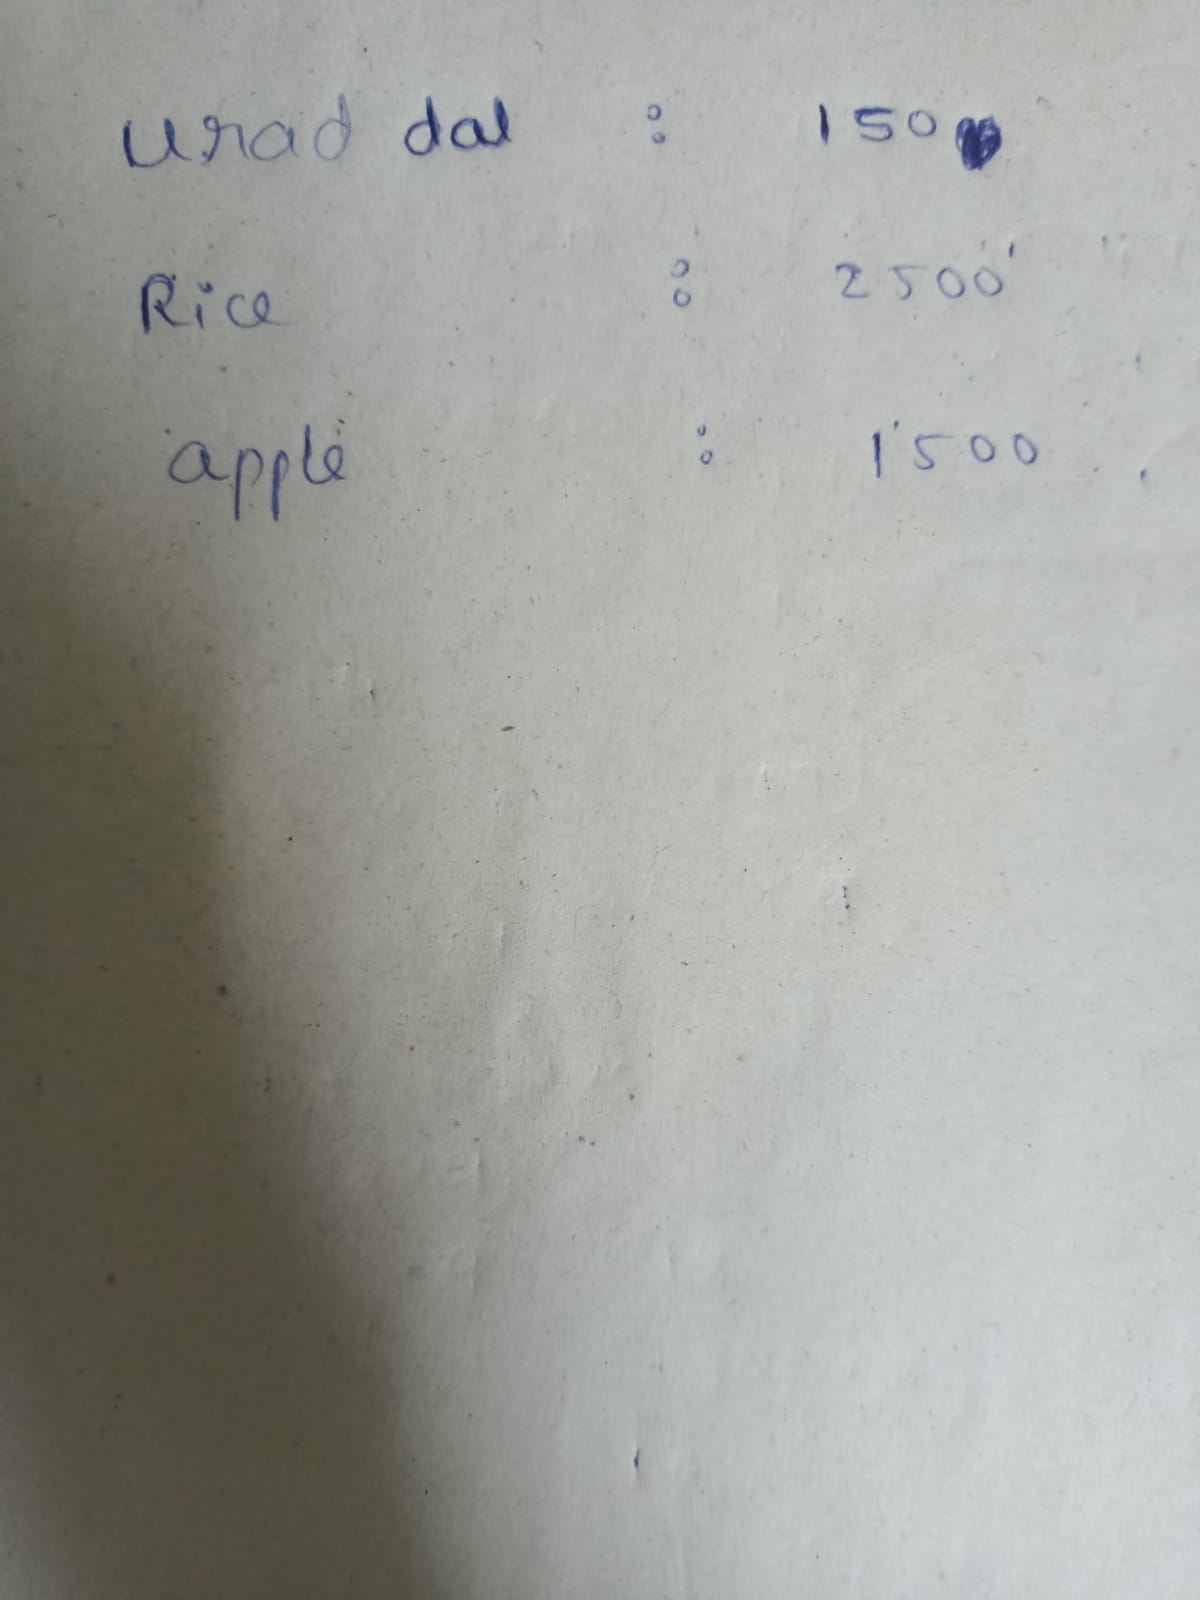 urad dal : 150
Rice : 2500
apple : 1500